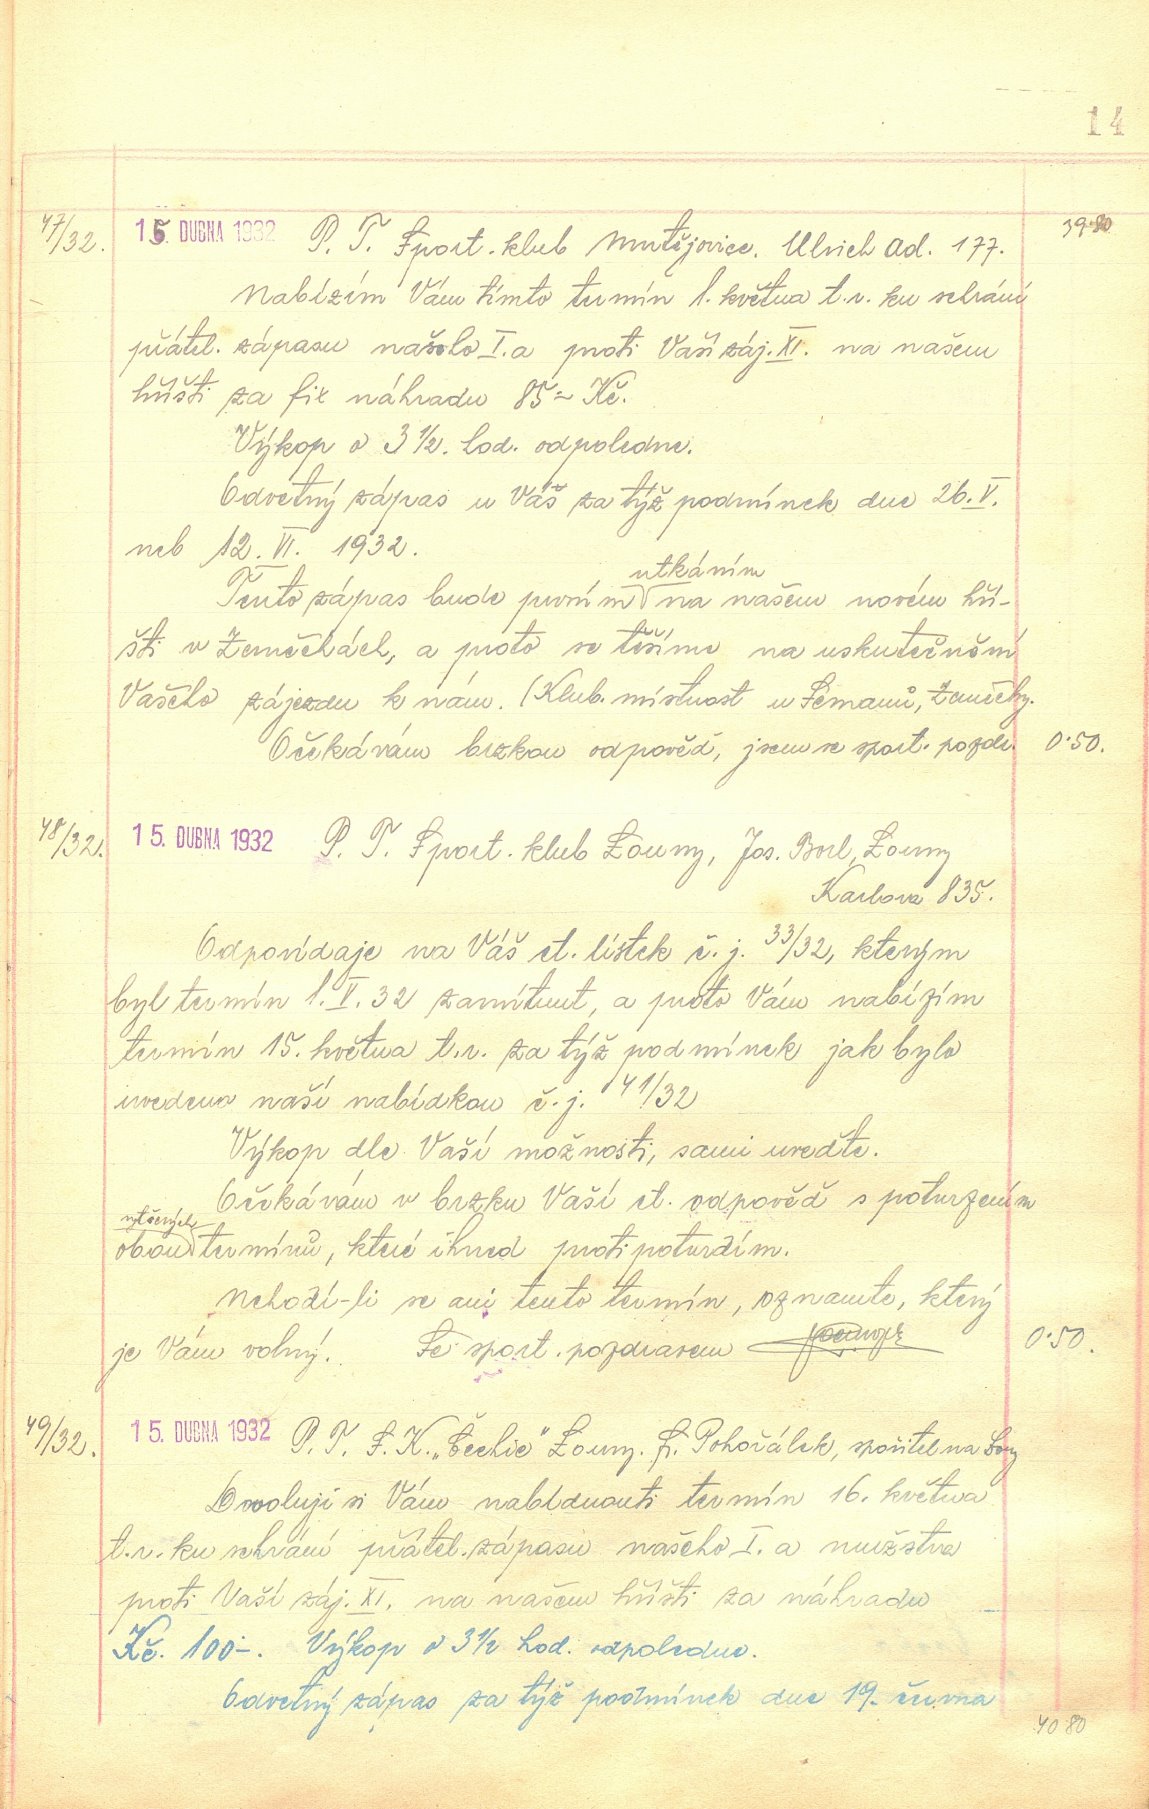 14
47/32. 15. DUBNA 1932 P. T. Sport. klub Mutějovice. Ulrich Ad. 177. 39·80
Nabízím Vám tímto termín 1. května t. r. ku sehrání
přátel. zápasu našeho I. a proti Vaší záj. XI. na našem
hřišti za fix náhradu 85 = Kč.
Výkop o 3 1/2. hod. odpoledne.
Odvetný zápas u Vás za týž podmínek dne 26. V.
neb 12. VI. 1932.
utkáním
Tento zápas bude prvním na našem novém hři-
šti v Zeměchách, a proto se těšíme na uskutečnění
Vašeho zájezdu k nám. (Klub. místnost u Zemanů, Zeměchy.
Očekávám brzkou odpověď, jsem se sport. pozdr. 0·50.
48/32. 15. DUBNA 1932 P. T. Sport. klub Louny, Jos. Louny
Karlova 835.
Odpovídaje na Váš ct. lístek č. j. 33/32, kterým
byl termín 1. V. 32 zamítnut, a proto Vám nabízím
termín 15. května t. r. za týž podmínek jak bylo
uvedeno naší nabídkou č. j. 41/32
Výkop dle Vaší možnosti, sami uveďte.
Očekávám v brzku Vaší ct. odpověď s potvrzením
obou termínů, které ihned protipotvrdím.
Nehodí-li se ani tento termín, oznamte, který
je Vám volný. Se sport. pozdravem 0·50.
49/32. 15. DUBNA 1932 P. T. S. K. "Čechie" Louny. F. Pohořálek, spořitelna Louny
Dovoluji si Vám nabídnouti termín 16. května
t. r. ku sehrání přátel. zápasu našeho I. a mužstva
proti Vaší záj. XI. na našem hřišti za náhradu
Kč. 100-. Výkop o 3 1/2 hod. odpoledne.
Odvetný zápas za týž podmínek dne 19. června
40 80